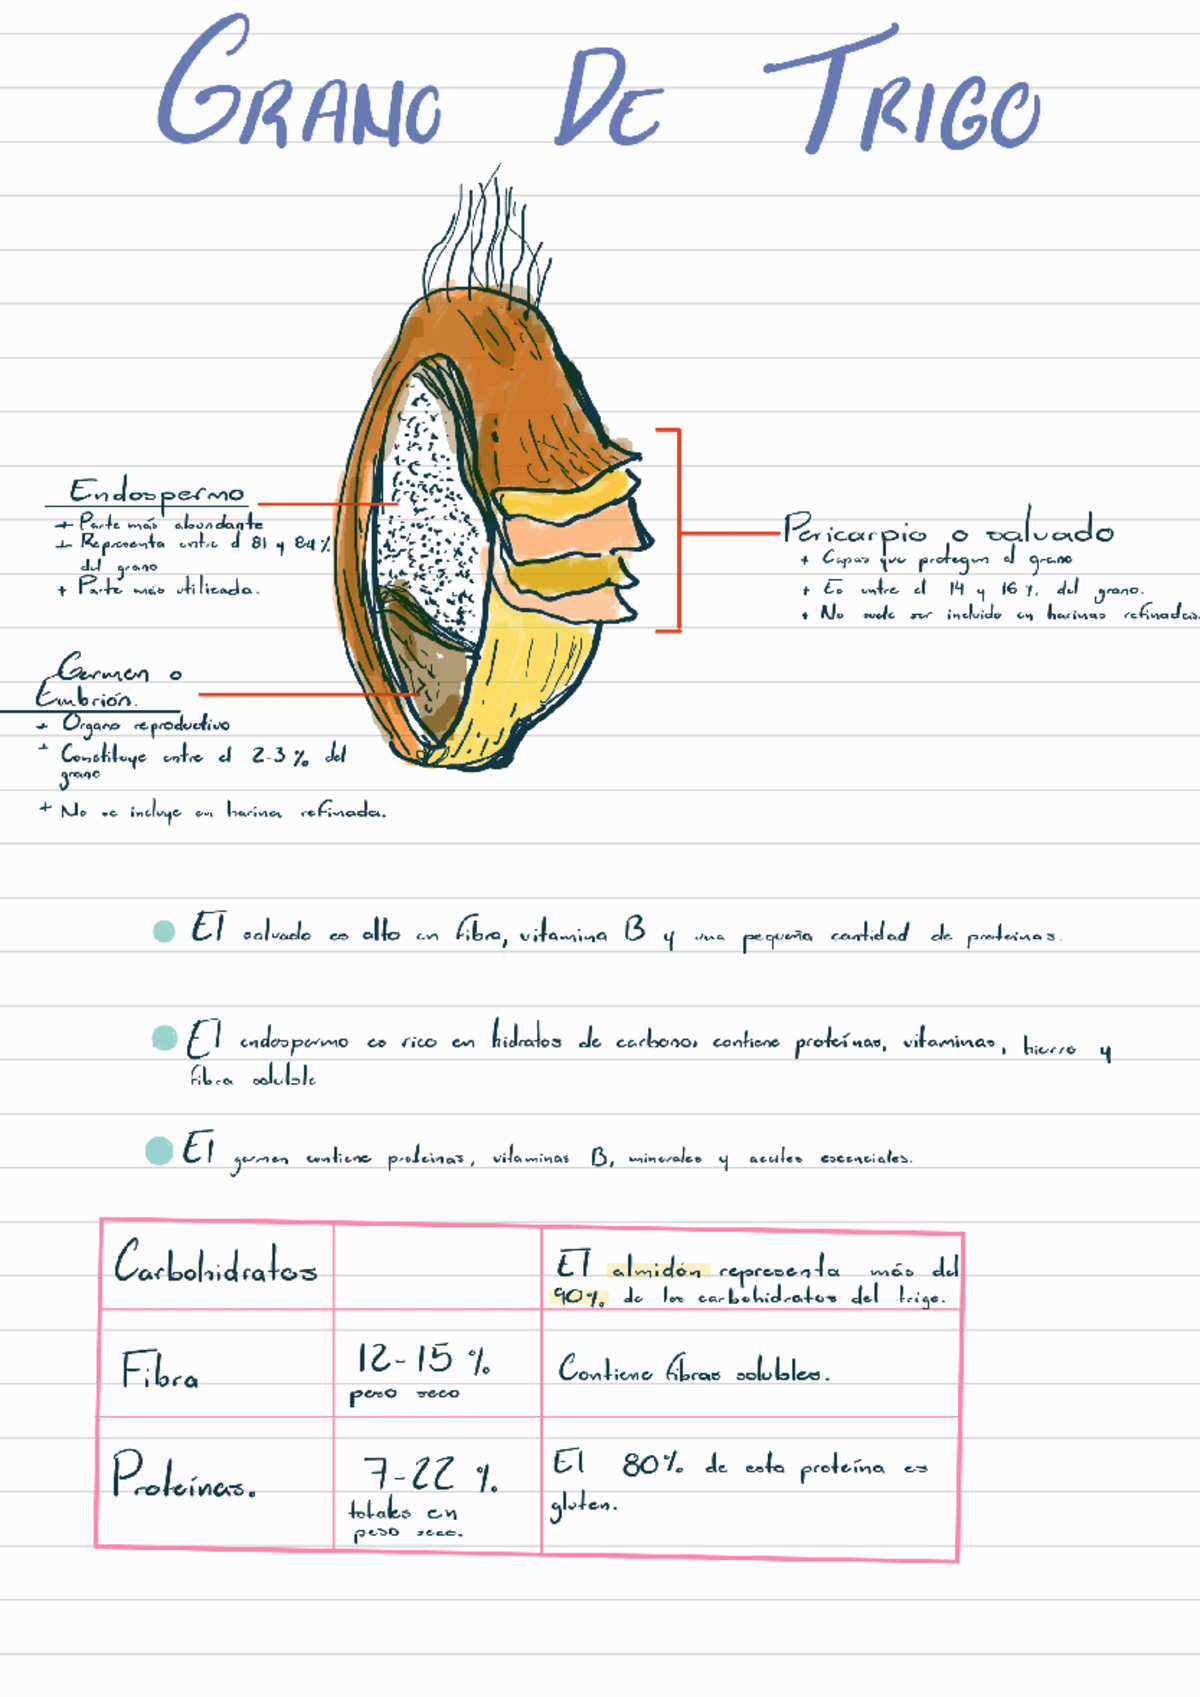 GRANO DE TRIGO
Endospermo
+ Parte más abundante
+ Representa entre el 81 y 84 %
del grano
+ Parte más utilizada.
Pericarpio o salvado
+ Capas que protegen el grano
+ Es entre el 14 y 16 %. del grano.
+ No suele ser incluido en harinas refinadas.
Germen o
Embrión.
+ Organo reproductivo
+ Constituye entre el 2-3 % del
grano
+ No se incluye en harina refinada.
El salvado es alto en fibra, vitamina B y una pequeña cantidad de proteínas.
El endospermo es rico en hidratos de carbono, contiene proteínas, vitaminas, hierro y
fibra soluble
El germen contiene proteínas, vitaminas B, minerales y aceites escenciales.
Carbohidratos
El almidón representa más del
90% de los carbohidratos del trigo.
Fibra
12-15 %
peso seco
Contiene fibras solubles.
Proteínas.
7-22 %
totales en
peso seco.
El 80% de esta proteína es
gluten.